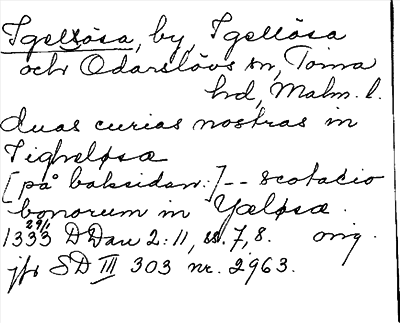 Igellösa, by, Igellösa
och Odarslövs sn, Torna
hd, Malm. l.
duas curias nostras in
Tigheløsæ
[på baksidan:] -- scotacio
bonorum in Yæløsæ.
29/1
1333 DDan 2:11, ss. 7, 8. orig.
jfr SD III 303 nr. 2963.